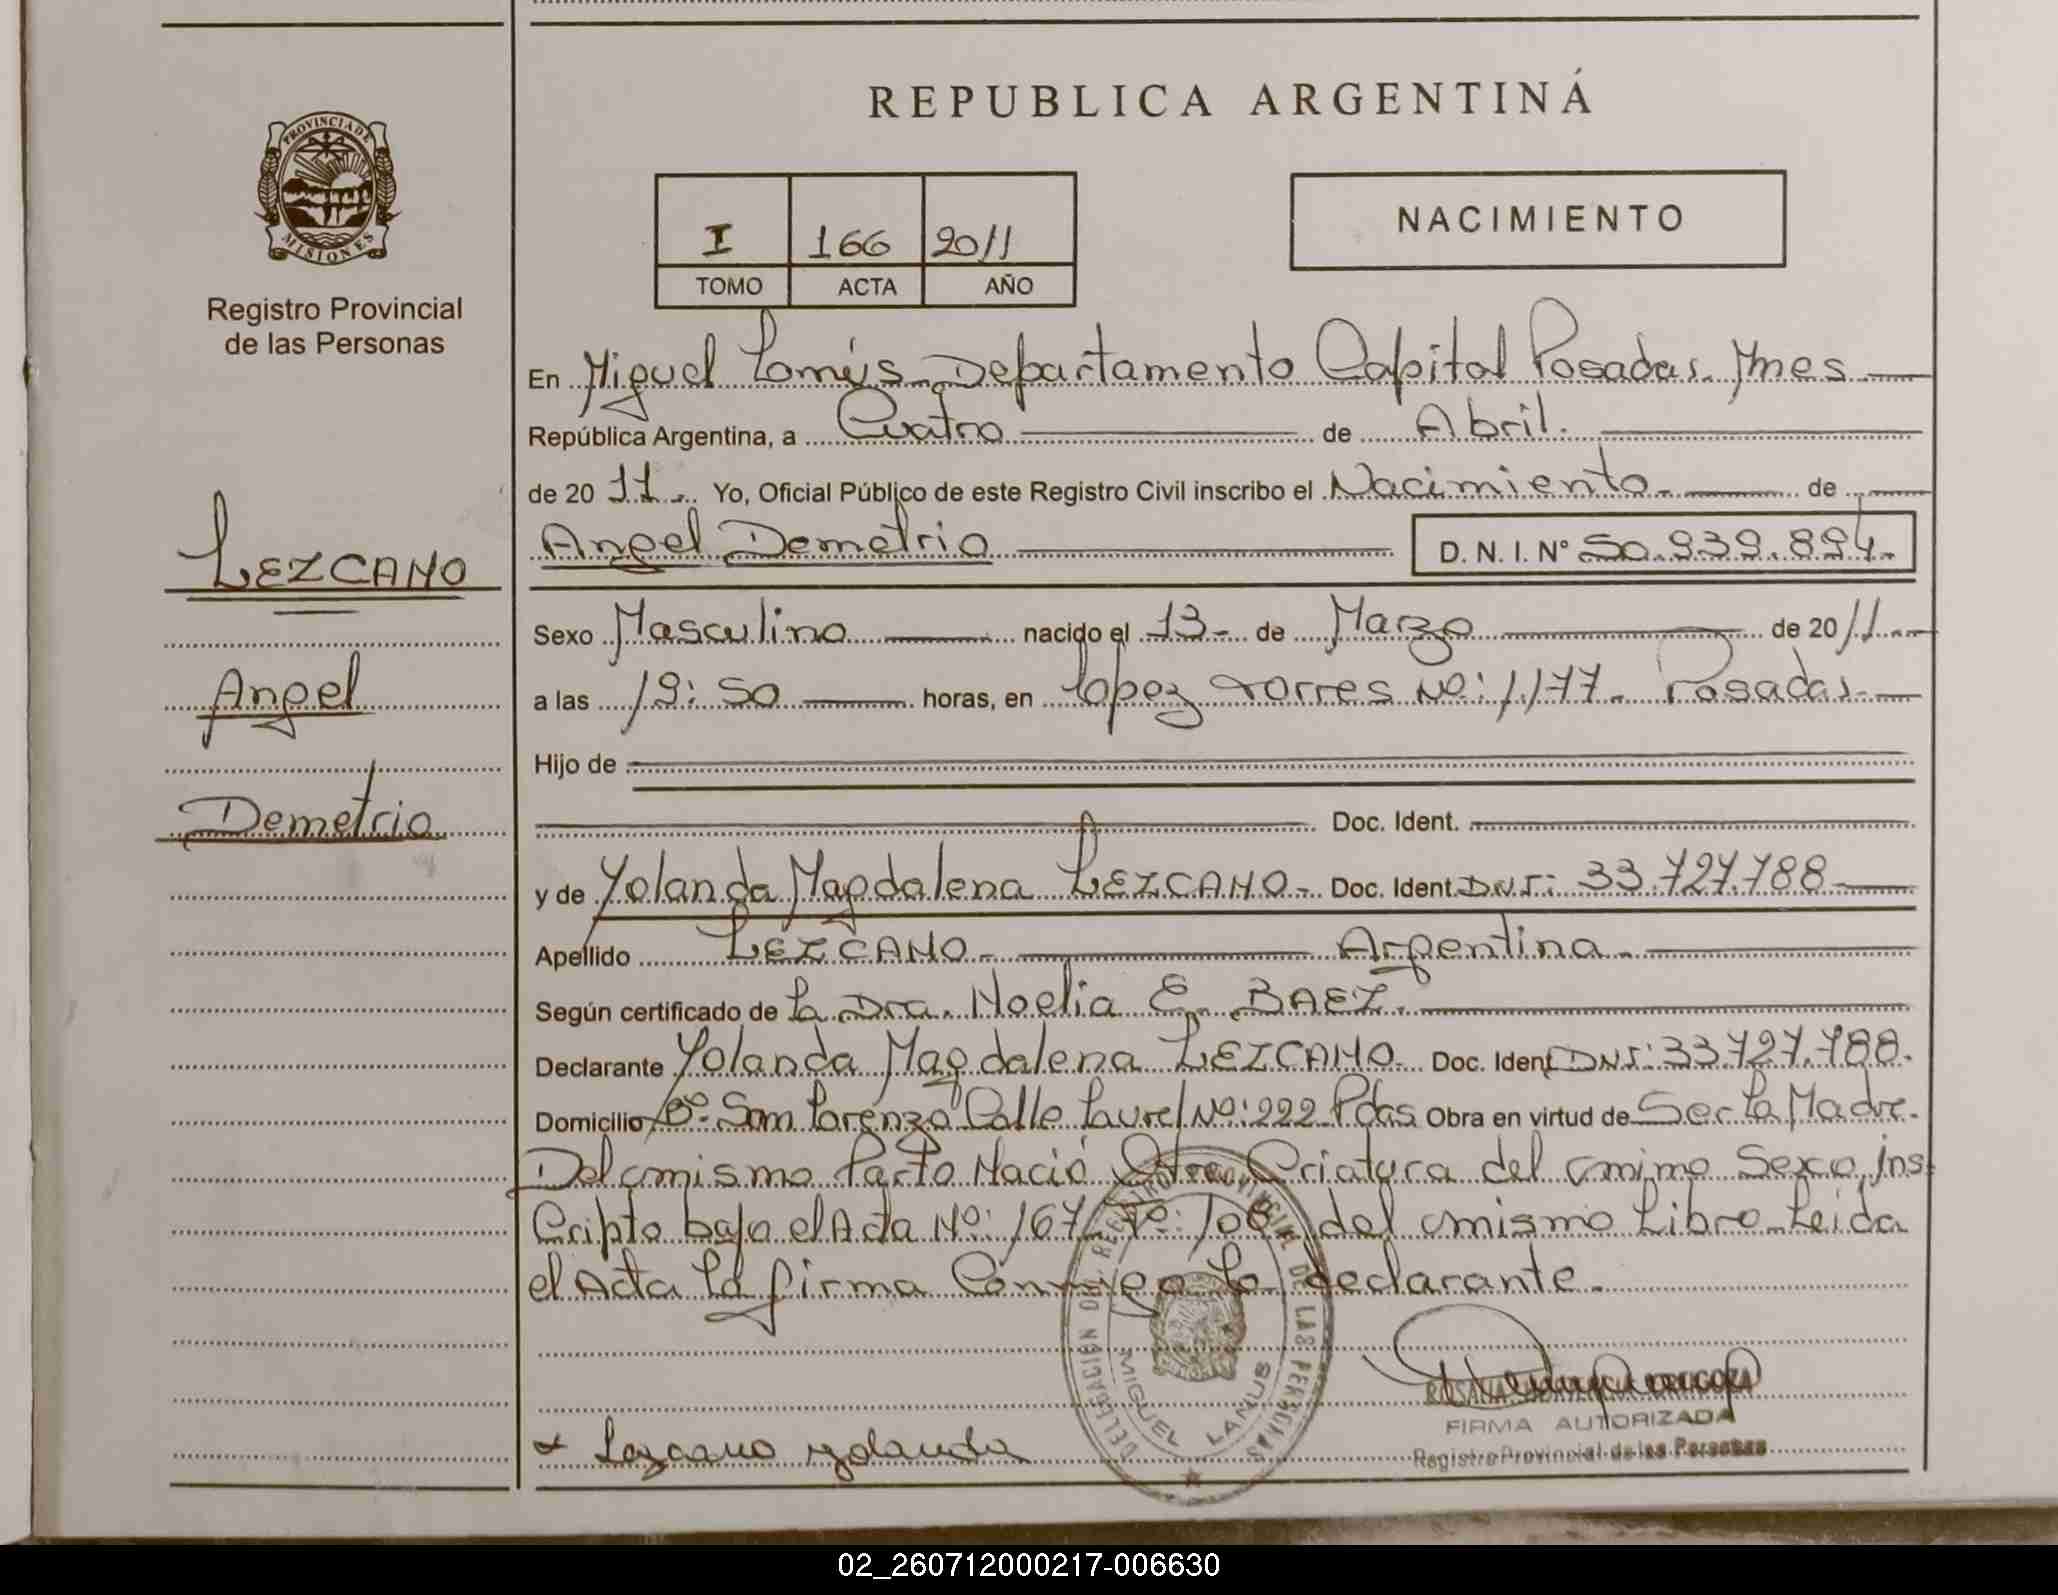 REPUBLICA ARGENTINA
PROVINCIA DE MISIONES
Registro Provincial
de las Personas
I 166 2011
TOMO ACTA AÑO
NACIMIENTO
En Miguel Lanús Departamento Capital Posadas. Mnes
República Argentina, a Cuatro de Abril.
de 20 11.. Yo, Oficial Público de este Registro Civil inscribo el Nacimiento de
Angel Demetrio D. N. I. N° 50.939.894.
LEZCANO
Angel
Demetrio
Sexo Masculino nacido el 13 de Marzo de 20 11
a las 19:50 horas, en Lopez Torres Nº: 1.177. Posadas
Hijo de
Doc. Ident.
y de Yolanda Magdalena LEZCANO Doc. Ident. D.N.I: 33.727.788
Apellido LEZCANO Argentina
Según certificado de La Dra. Noelia E. BAEZ.
Declarante Yolanda Magdalena LEZCANO Doc. Ident. DNI: 33.727.788.
Domicilio Bº San Lorenzo Calle Laurel Nº: 222 Pdas Obra en virtud de Ser La Madre.
Del mismo Parto Nació Otra Criatura del mimo Sexo Ins
Cripto bajo el Acta Nº: 167 Fº: 108 del mismo Libro Leida
el Acta La firma Conmigo La declarante.
DELEGACION DEL REGISTRO PROVINCIAL DE LAS PERSONAS
MIGUEL LANUS
FIRMA AUTORIZADA
Registro Provincial de las Personas
Lezcano Yolanda
02_260712000217-006630